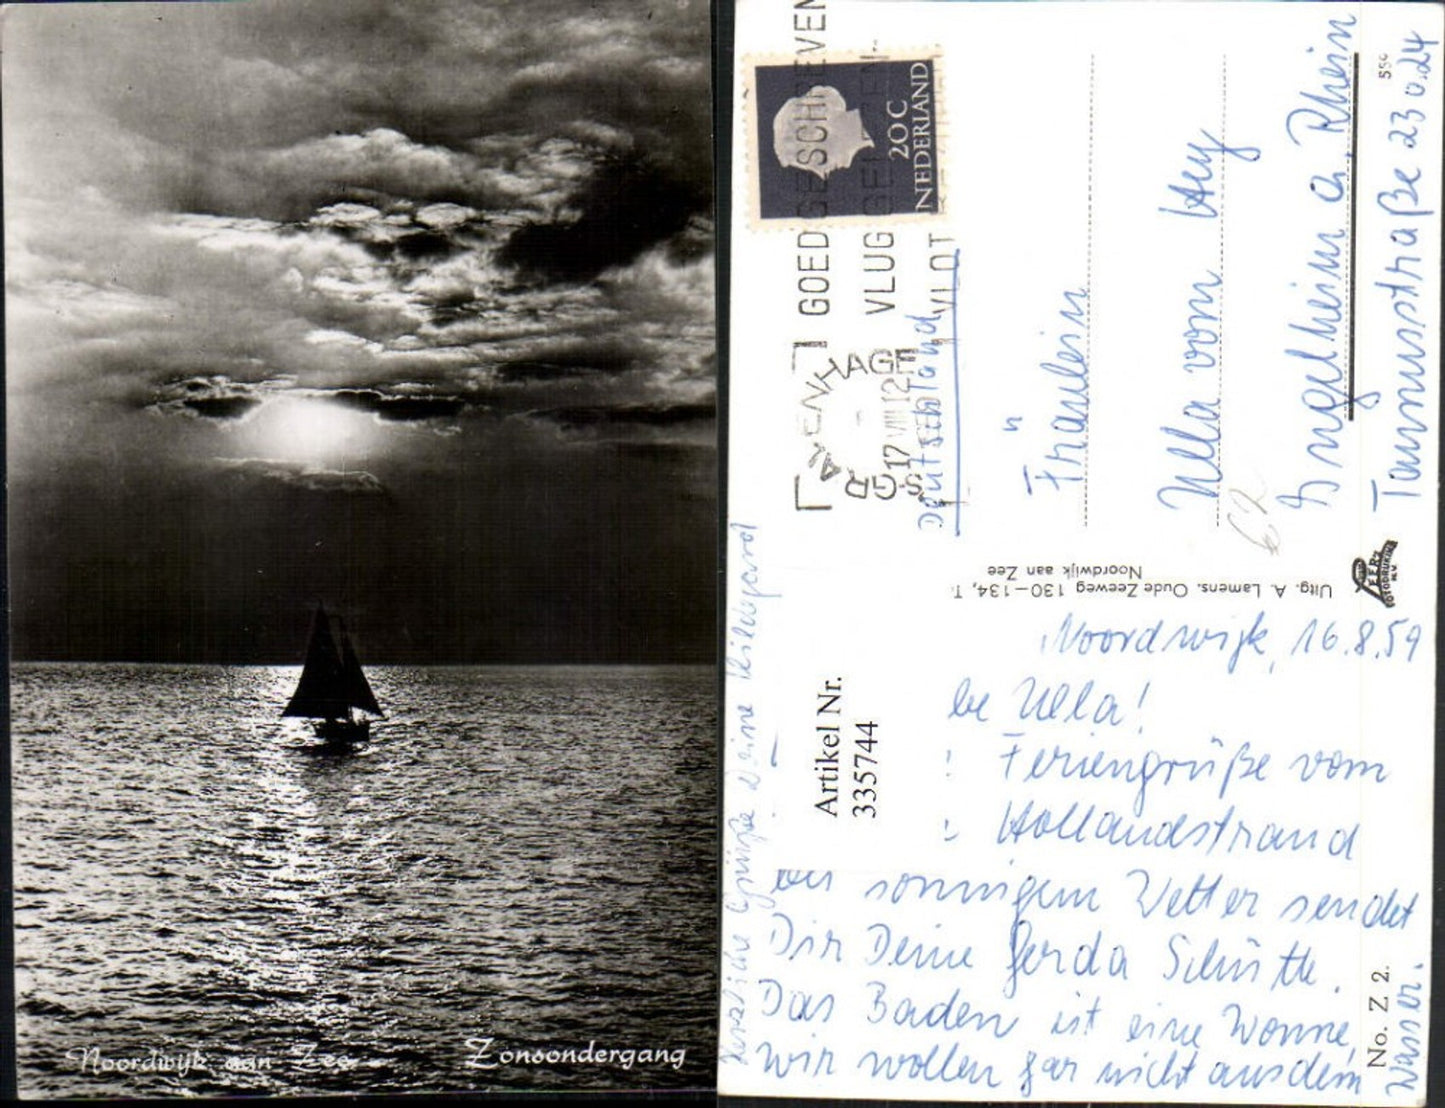 Noordwijk aan Zee
Zonsondergang
NEDERLAND
20 C
GOED GESCHREVEN
VLUG
VLOT
'S-GRAVENHAGE
17 VIII 12
Deutschland
Fräulein
Ulla vom Hey
Ingelheim a. Rhein
Taunusstraße 23
Uitg. A. Lamens, Oude Zeeweg 130-134, T.
Noordwijk aan Zee
FOTODRUKINR
N.V.
Artikel Nr.
335744
Noordwijk, 16.8.59
be Ulla!
Feriengrüße vom
Hollandstrand
bei sonnigem Wetter sendet
Dir Deine Gerda Schütte.
Das Baden ist eine Wonne,
wir wollen gar nicht aus dem
Wasser.
Herzliche Grüße Deine Hildegard
No. Z 2.